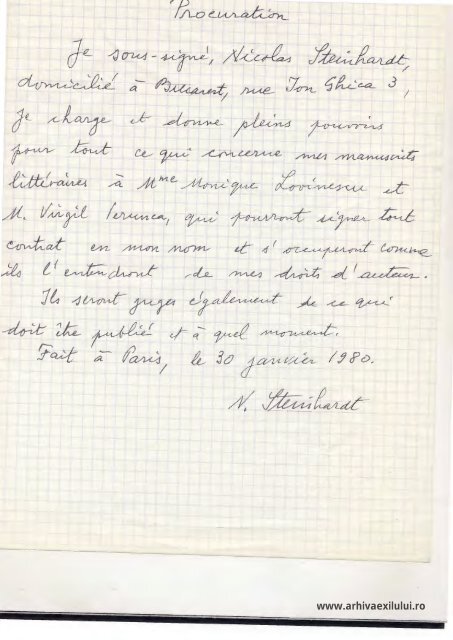 Procuration
Je sous-signé, Nicolas Steinhardt,
domicilié à Bucarest, rue Ion Ghica 3,
je charge et donne pleins pouvoirs
pour tout ce qui concerne mes manuscrits
littéraires à Mme Monique Lovinescu et
M. Virgil Ierunca, qui pourront signer tout
contrat en mon nom et s'occuperont comme
ils l'entendront de mes droits d'auteur.
Ils seront juges également de ce qui
doit être publié et à quel moment.
Fait à Paris, le 30 janvier 1980.
N. Steinhardt
www.arhivaexilului.ro